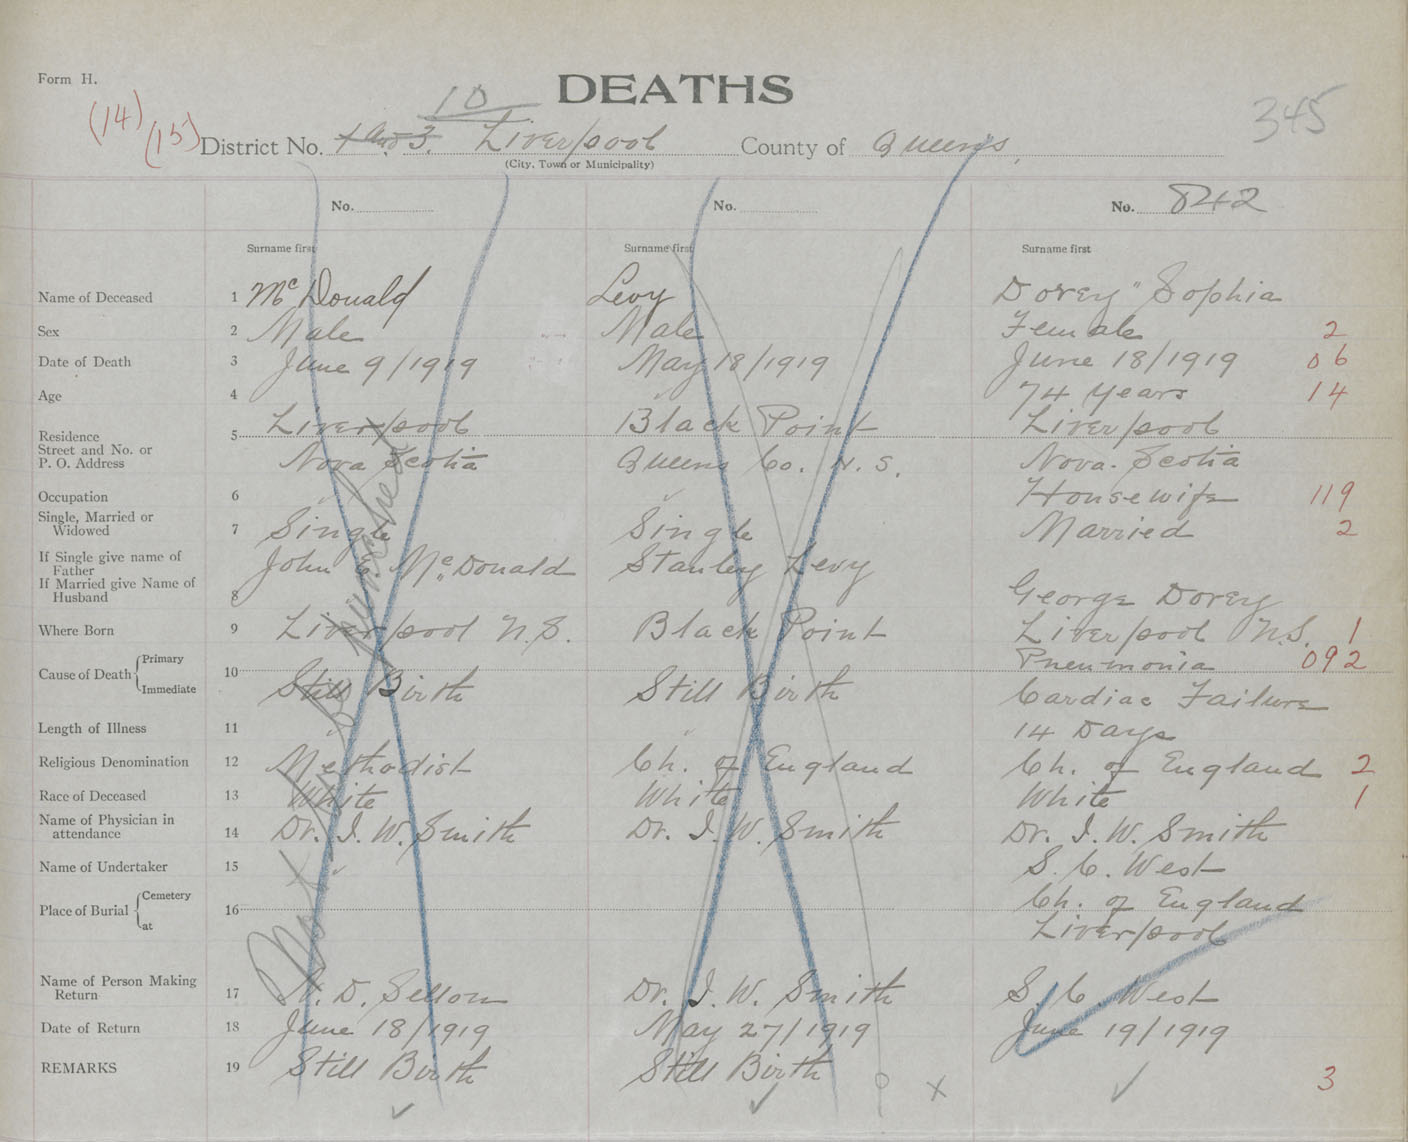 Form H.
DEATHS
345
(14)
(15)
10
District No. 1 and 3. Liverpool County of Queens
(City, Town or Municipality)
No. No. No. 842
Surname first Surname first Surname first
Name of Deceased 1 McDonald Levy Dorey " Sophia
Sex 2 Male Male Female 2
Date of Death 3 June 9/1919 May 18/1919 June 18/1919 06
Age 4 74 years 14
Residence 5 Liverpool Black Point Liverpool
Street and No. or P. O. Address Nova Scotia Queens Co. N. S. Nova. Scotia
Occupation 6 Housewife 119
Single, Married or Widowed 7 Single Single Married 2
If Single give name of Father John C. McDonald Stanley Levy
If Married give Name of Husband 8 George Dorey
Where Born 9 Liverpool N.S. Black Point Liverpool N.S. 1
Cause of Death Primary 10 Pneumonia 092
Immediate Still Birth Still Birth Cardiac Failure
Length of Illness 11 14 Days
Religious Denomination 12 Methodist Ch. of England Ch. of England 2
Race of Deceased 13 White White White 1
Name of Physician in attendance 14 Dr. I. W. Smith Dr. I. W. Smith Dr. I. W. Smith
Name of Undertaker 15 S. C. West
Place of Burial Cemetery 16 Ch. of England
at Liverpool
Name of Person Making Return 17 D. Sellon Dr. I. W. Smith S. C. West
Date of Return 18 June 18/1919 May 27/1919 June 19/1919
REMARKS 19 Still Birth Still Birth 3
Not to be numbered